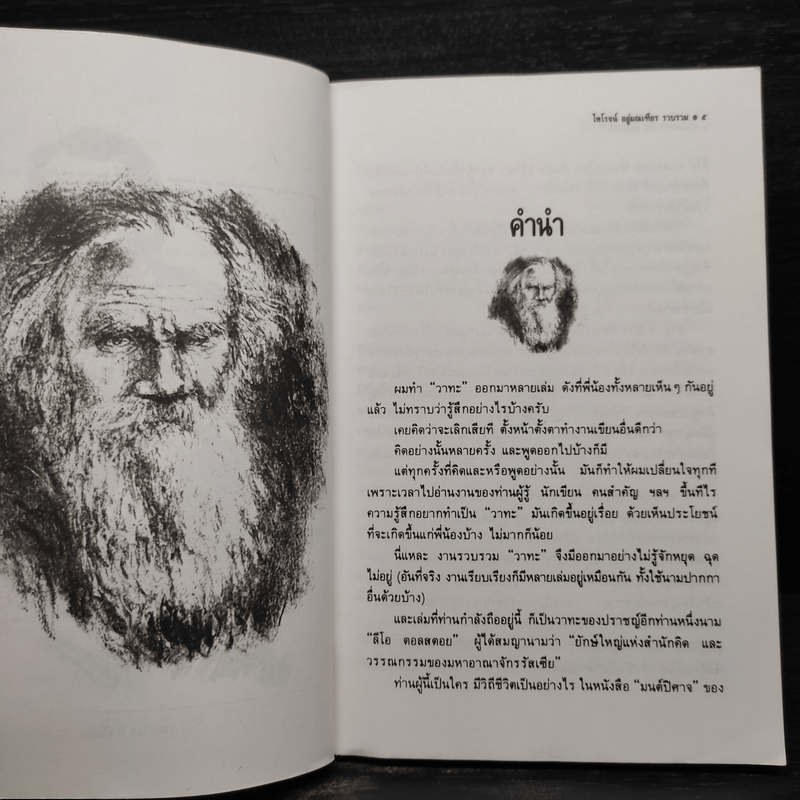 ไพโรจน์ อยู่มณเฑียร รวบรวม ๑ ๕
คำนำ
ผมทำ “วาทะ” ออกมาหลายเล่ม ดังที่พี่น้องทั้งหลายเห็นๆ กันอยู่
แล้ว ไม่ทราบว่ารู้สึกอย่างไรบ้างครับ
เคยคิดว่าจะเลิกเสียที ตั้งหน้าตั้งตาทำงานเขียนอื่นดีกว่า
คิดอย่างนั้นหลายครั้ง และพูดออกไปบ้างก็มี
แต่ทุกครั้งที่คิดและหรือพูดอย่างนั้น มันก็ทำให้ผมเปลี่ยนใจทุกที
เพราะเวลาไปอ่านงานของท่านผู้รู้ นักเขียน คนสำคัญ ฯลฯ ขึ้นทีไร
ความรู้สึกอยากทำเป็น “วาทะ” มันเกิดขึ้นอยู่เรื่อย ด้วยเห็นประโยชน์
ที่จะเกิดขึ้นแก่พี่น้องบ้าง ไม่มากก็น้อย
นี่แหละ งานรวบรวม “วาทะ” จึงมีออกมาอย่างไม่รู้จักหยุด ฉุด
ไม่อยู่ (อันที่จริง งานเรียบเรียงก็มีหลายเล่มอยู่เหมือนกัน ทั้งใช้นามปากกา
อื่นด้วยบ้าง)
และเล่มที่ท่านกำลังถืออยู่นี้ ก็เป็นวาทะของปราชญ์อีกท่านหนึ่งนาม
“ลีโอ ตอลสตอย” ผู้ได้สมญานามว่า “ยักษ์ใหญ่แห่งสำนักคิด และ
วรรณกรรมของมหาอาณาจักรรัสเซีย”
ท่านผู้นี้เป็นใคร มีวิถีชีวิตเป็นอย่างไร ในหนังสือ “มนต์ปิศาจ” ของ